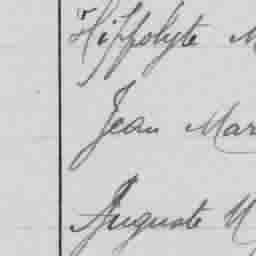 Hippolyte M
Jean Mar
Auguste M